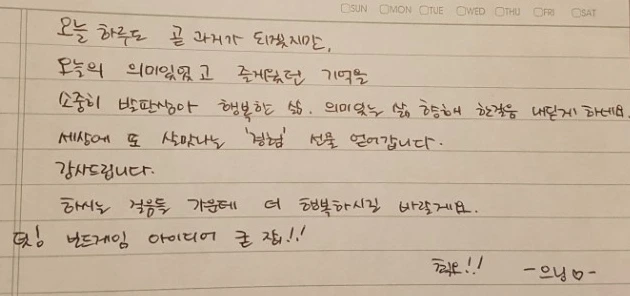 SUN MON TUE WED THU FRI SAT
오늘 하루도 곧 과거가 되겠지만,
오늘의 의미있었고 즐거웠던 기억을
소중히 발판삼아 행복한 삶. 의미있는 삶 향해 한걸음 내딛게 하네요.
세상에 또 살맛나는 '경험' 선물 얻어갑니다.
감사드립니다.
하시는 걸음들 가운데 더 행복하시길 바랄게요.
덧! 보드게임 아이디어 굳 잡!!
최고!! -으닝♡-